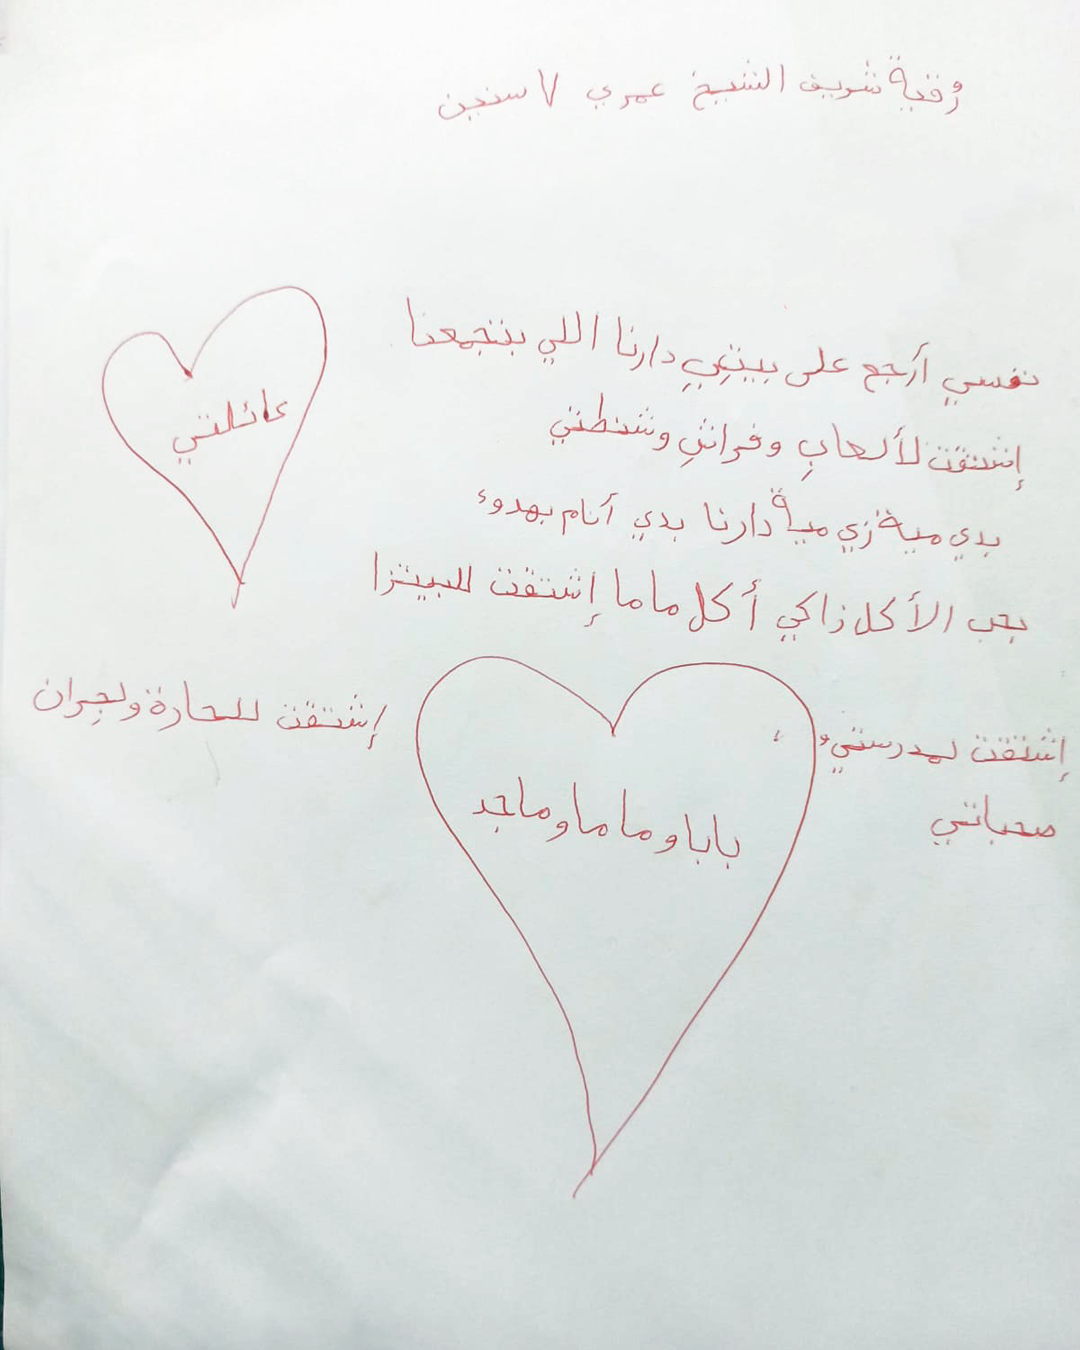 رُقية شريف الشيخ عمري ٧ سنين
نفسي أرجع على بيتي دارنا اللي بتجمعنا
عائلتي
إشتقت لألعابِ وفراشِ وشنطتي
بدي مية زي مية دارنا بدي أنام بهدوء
بحب الأكل زاكي أكل ماما إشتقت للبيتزا
إشتقت لمدرستي و
صحباتي
إشتقت للحارة ولجِران
بابا وماما وماجد